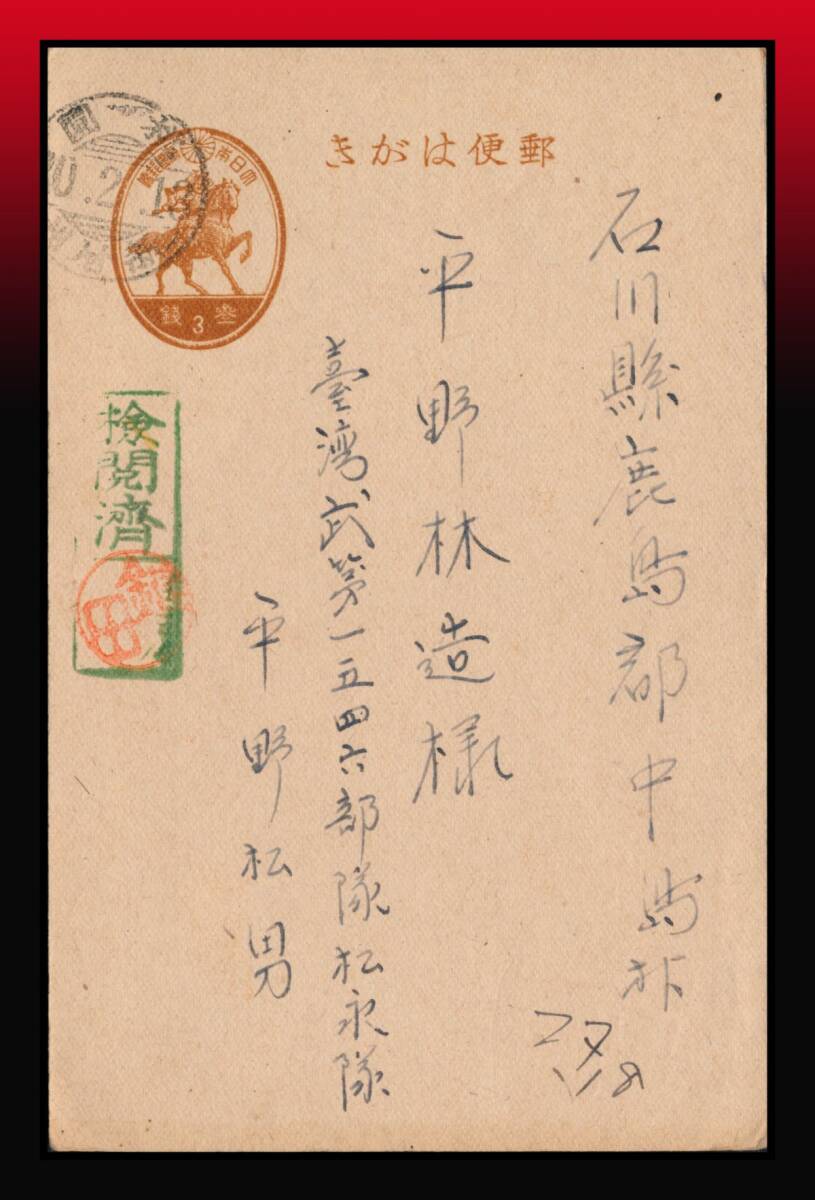 郵便はがき
石川縣鹿島郡中島村
平野林造様
臺湾武第一五四六部隊松永隊
平野松男
大日本帝國郵便
参 3 錢
20.2.13
檢閲濟